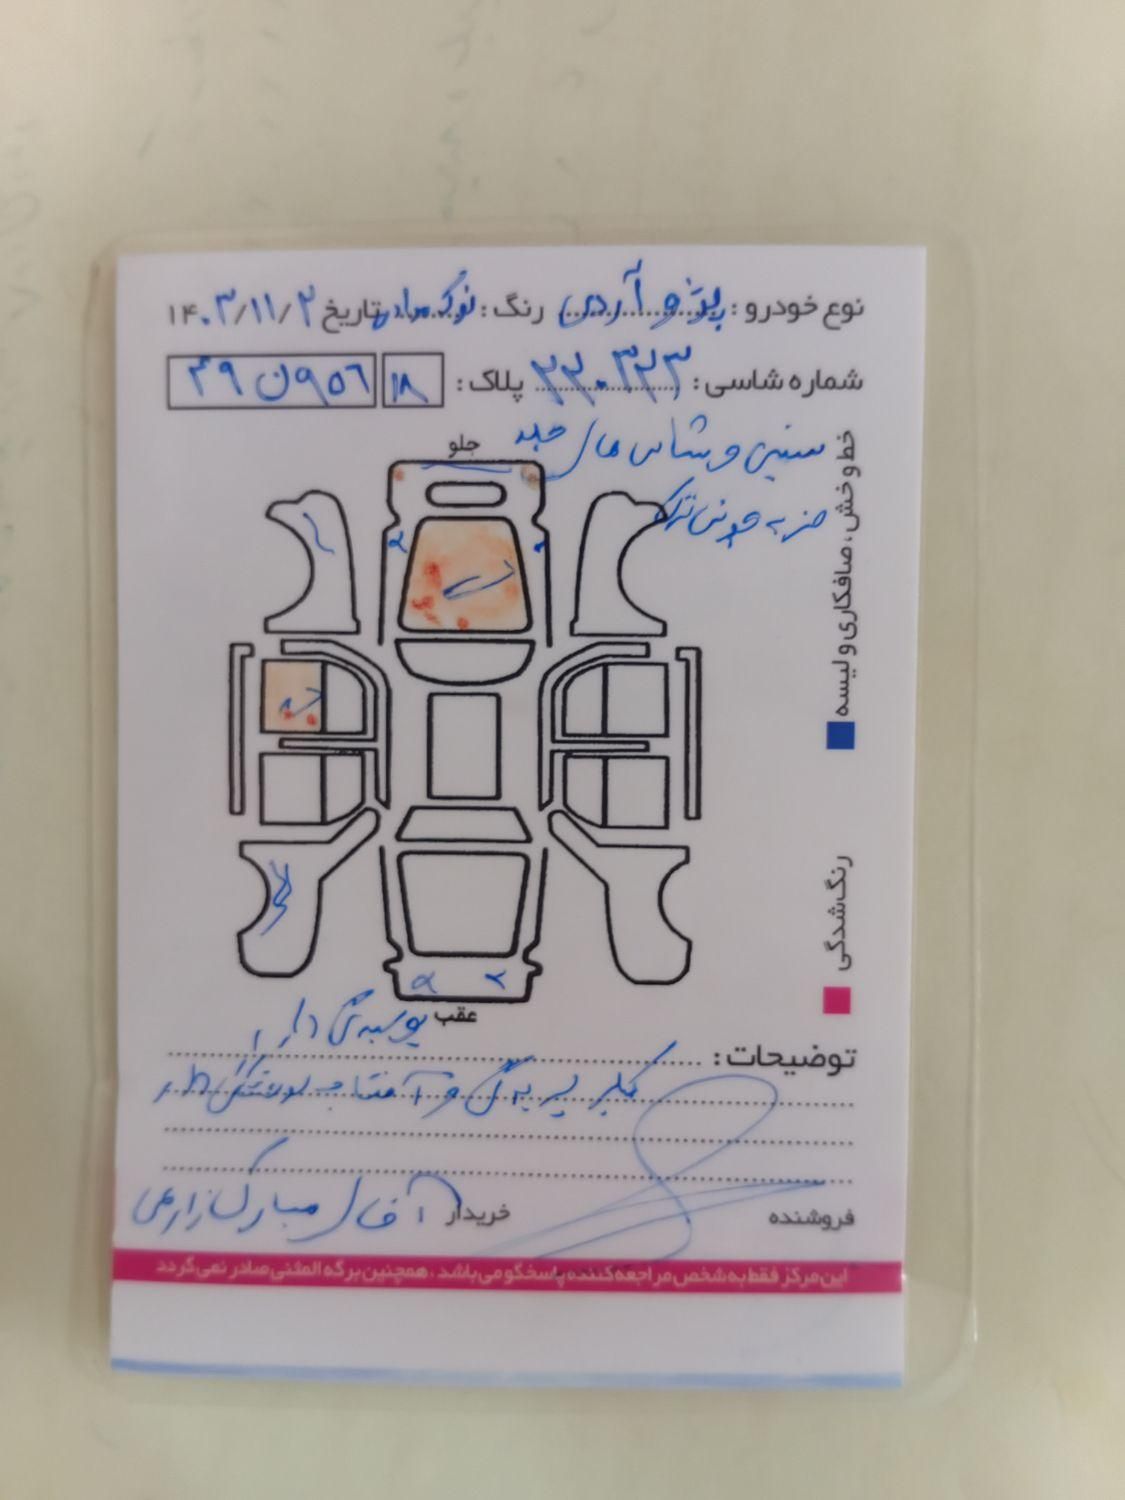 نوع خودرو: پژو آردی رنگ: نوک مدادی تاریخ ۱۴۰۳/۱۱/۲
شماره شاسی: ۲۲۰۳۲۳ پلاک: ۱۸ ۹۵۶ن۴۹
سینی و شاسی های جلو
ضربه خوردگی
جلو
خط و خش، صافکاری و لیسه
رنگ شدگی
عقب
پوسیدگی دارد
توضیحات:
گلگیر
خریدار آقای مبارک زارعی
فروشنده
این مرکز فقط به شخص مراجعه کننده پاسخگو می باشد، همچنین برگه المثنی صادر نمی گردد